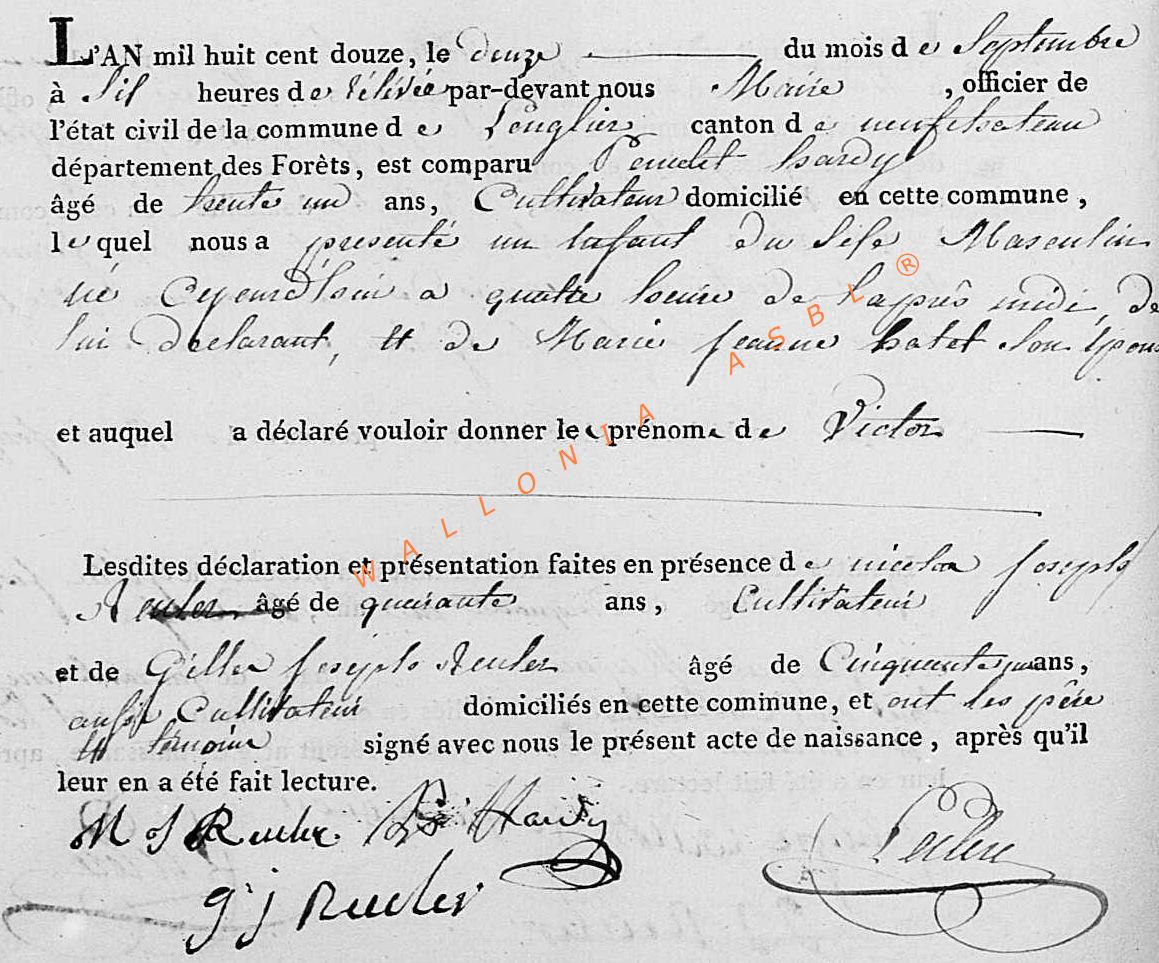 L'AN mil huit cent douze, le douze du mois de Septembre
à Six heures de rélévée par-devant nous Maire , officier de
l'état civil de la commune de Longlier canton de neufchateau
département des Forêts, est comparu hardy
âgé de trente un ans, Cultivateur domicilié en cette commune ,
lequel nous a presenté un Enfant du Sexe Masculin
né Cejourd'hui a quatre heure de l'après midi, de
lui declarant, et de Marie jeanne hatet Son Epouse
et auquel a déclaré vouloir donner le prénom de Victor
Lesdites déclaration et présentation faites en présence de nicolas joseph
âgé de quarante ans , Cultivateur
et de Gille joseph âgé de Cinquante ans ,
aussi Cultivateur domiciliés en cette commune, et ont les père
et témoins signé avec nous le présent acte de naissance , après qu'il
leur en a été fait lecture.
Hardy
Leclerc
g j
WALLONIA ASBL®